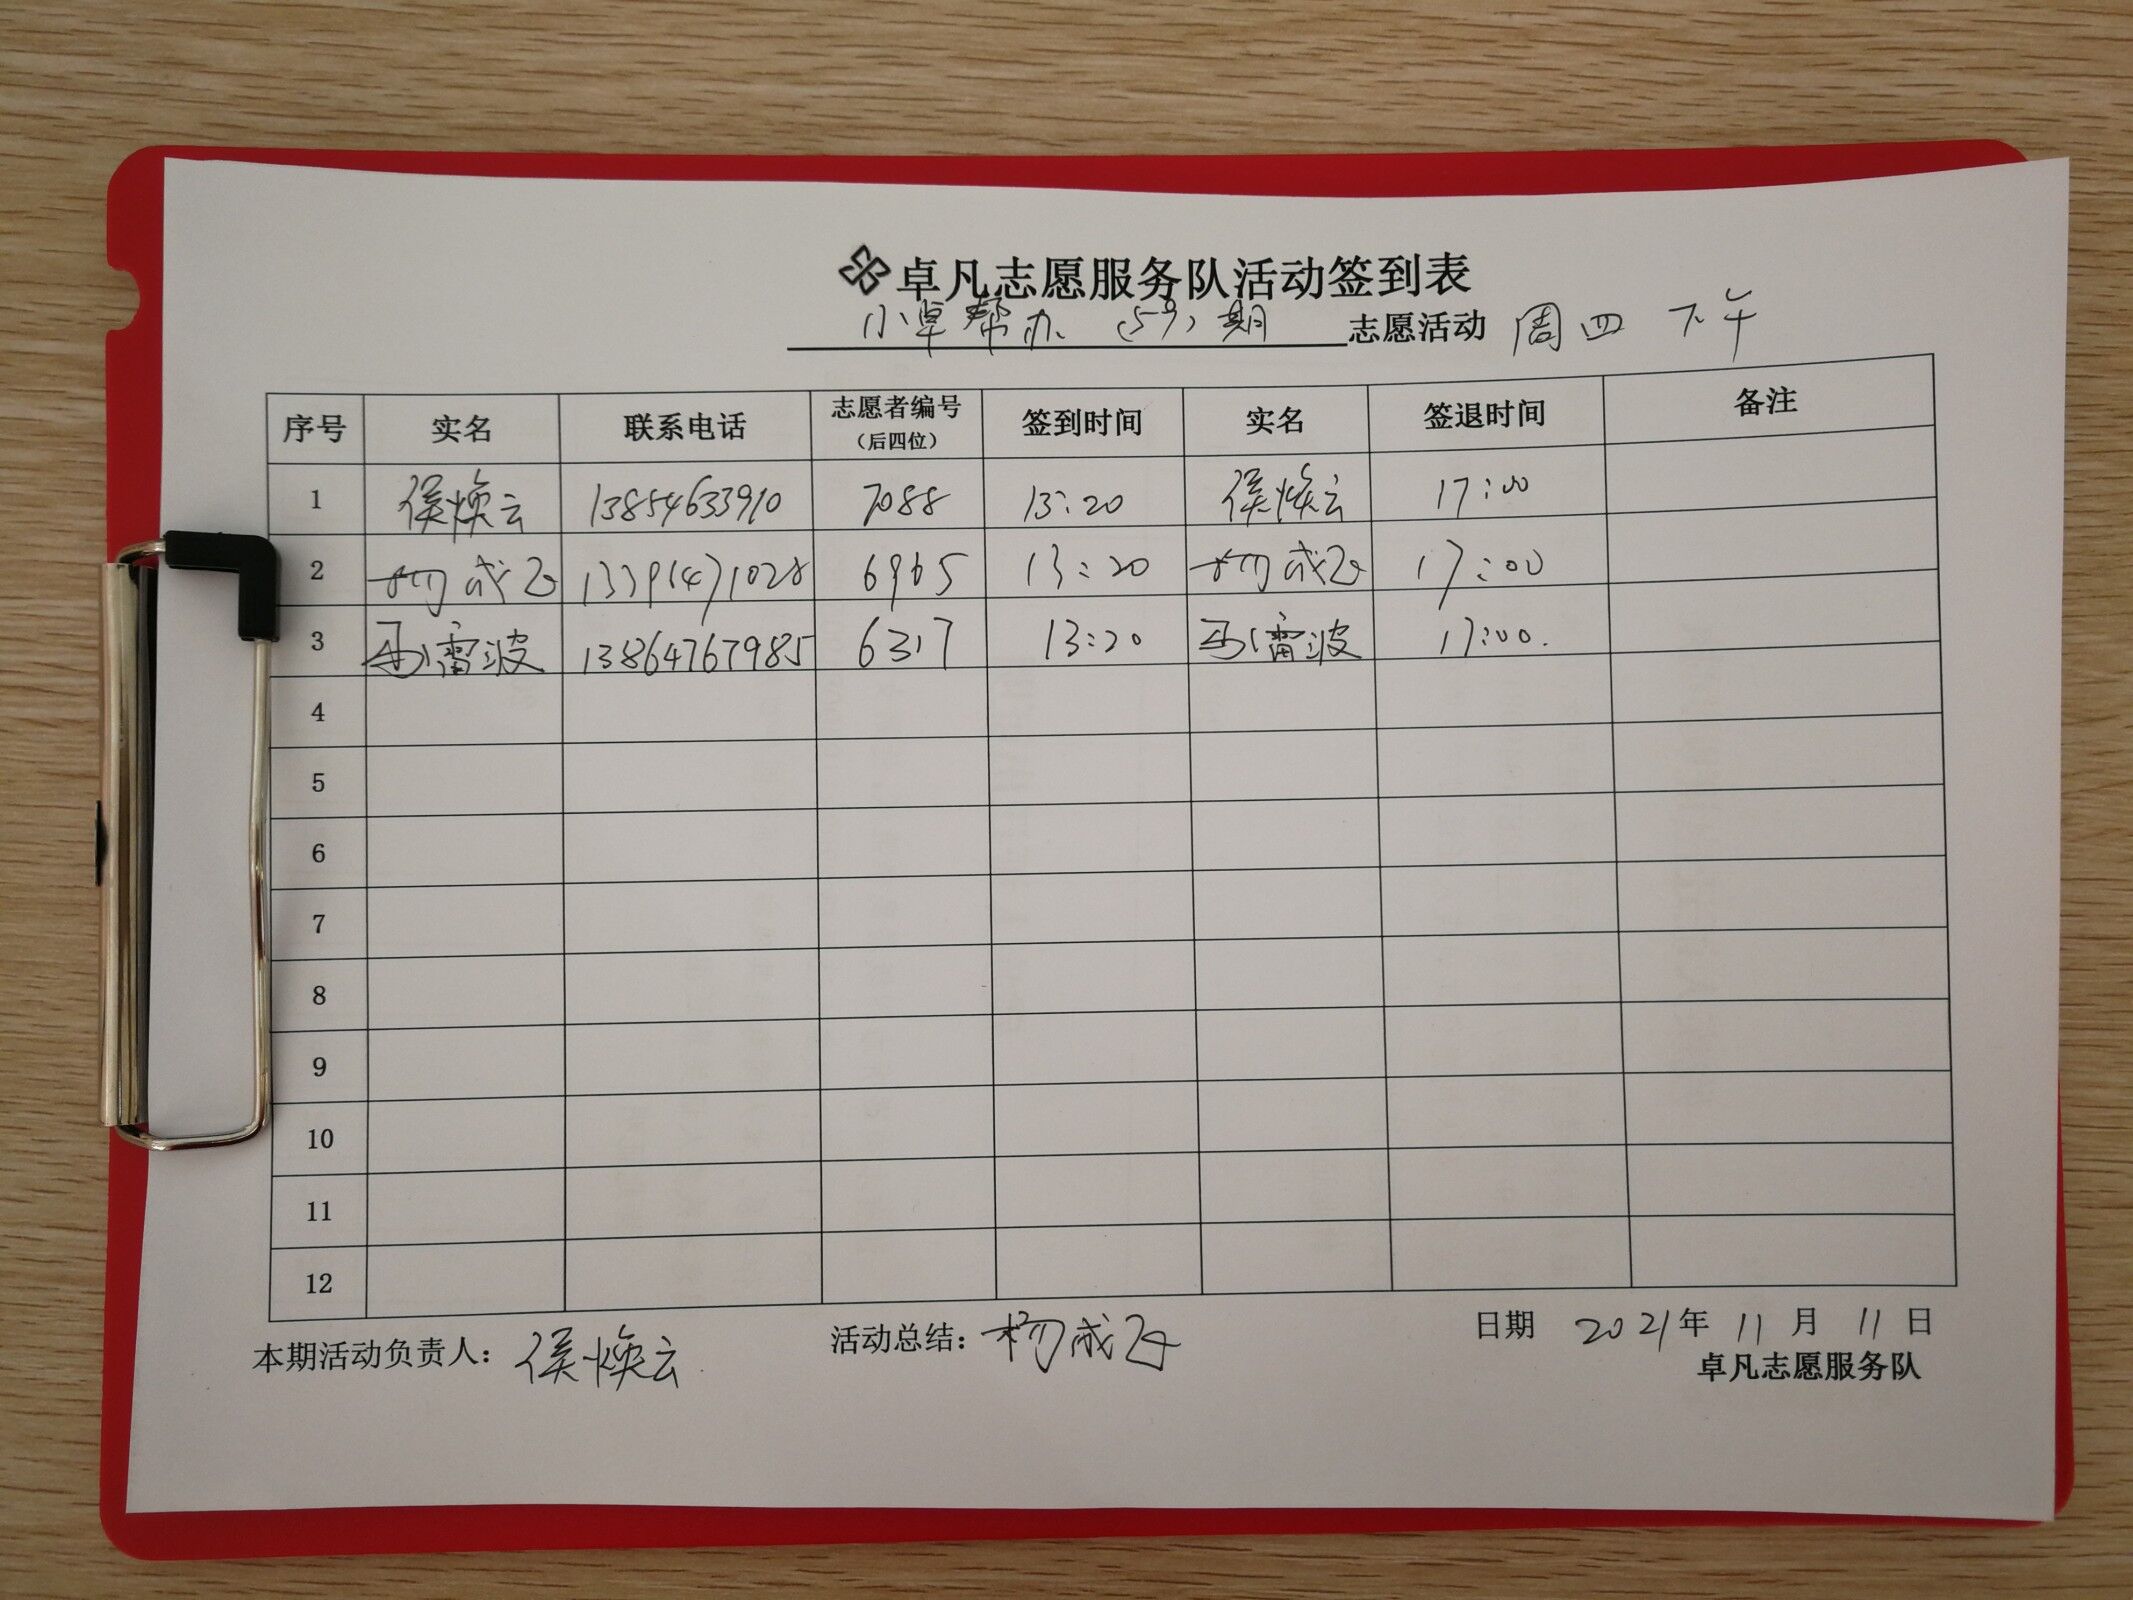 卓凡志愿服务队活动签到表
小卓帮办 (59) 期 志愿活动 周四 下午
序号 实名 联系电话 志愿者编号(后四位) 签到时间 实名 签退时间 备注
1 侯焕云 13854633910 7088 13:20 侯焕云 17:00
2 杨成飞 13391471028 6965 13:20 杨成飞 17:00
3 雷波 13864767985 6317 13:20 雷波 17:00.
4
5
6
7
8
9
10
11
12
本期活动负责人: 侯焕云 活动总结: 杨成飞 日期 2021年 11月 11日
卓凡志愿服务队